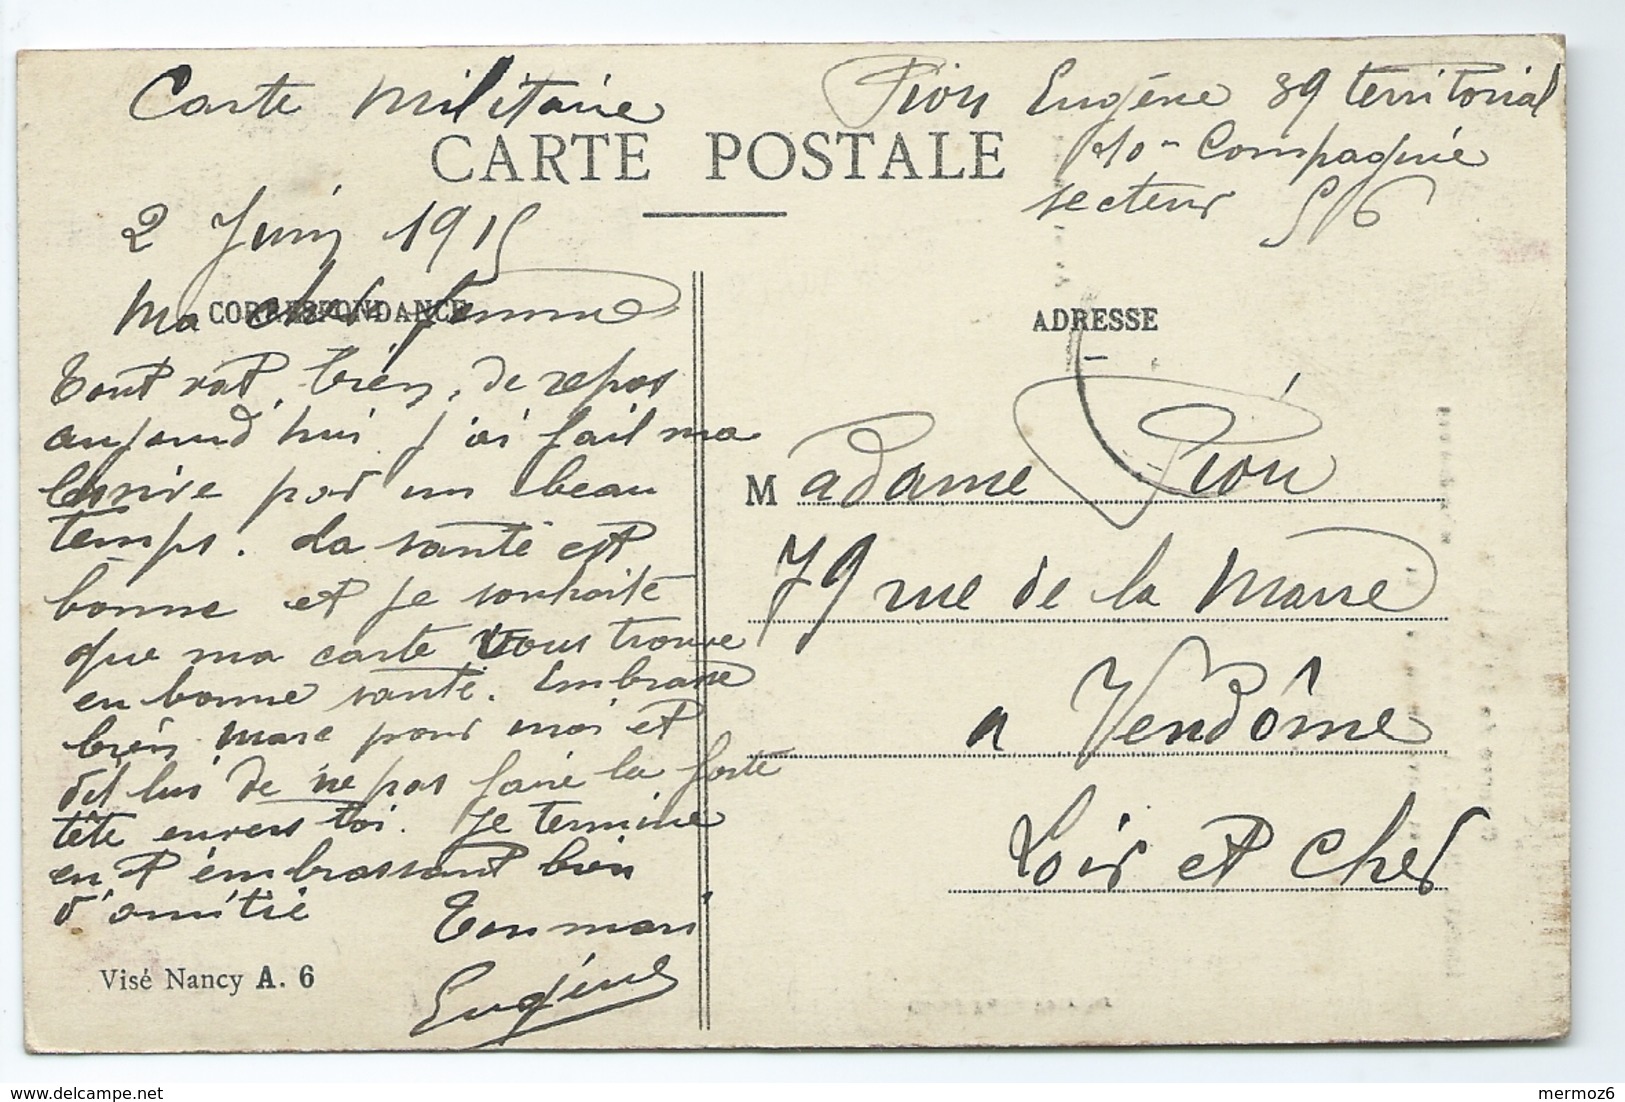 Carte Militaire
Pion Eugéne 39 territorial
10e Compagnie
secteur 56
CARTE POSTALE
2 Juin 1915
CORRESPONDANCE
Ma cher femme
Tout vat bien, de repos
aujourd'hui j'ai fait ma
par un beau
temps. La santé est
bonne et je souhaite
que ma carte vous trouve
en bonne santé. Embrasse
bien Marc pour moi et
dit lui de ne pas faire la forte
tête envers toi. Je termine
en t'embrassant bien
d'amitié
Ton mari
Eugéne
Visé Nancy A. 6
ADRESSE
Madame Pion
79 rue de la Marre
a Vendôme
Loir et Cher
mermoz6